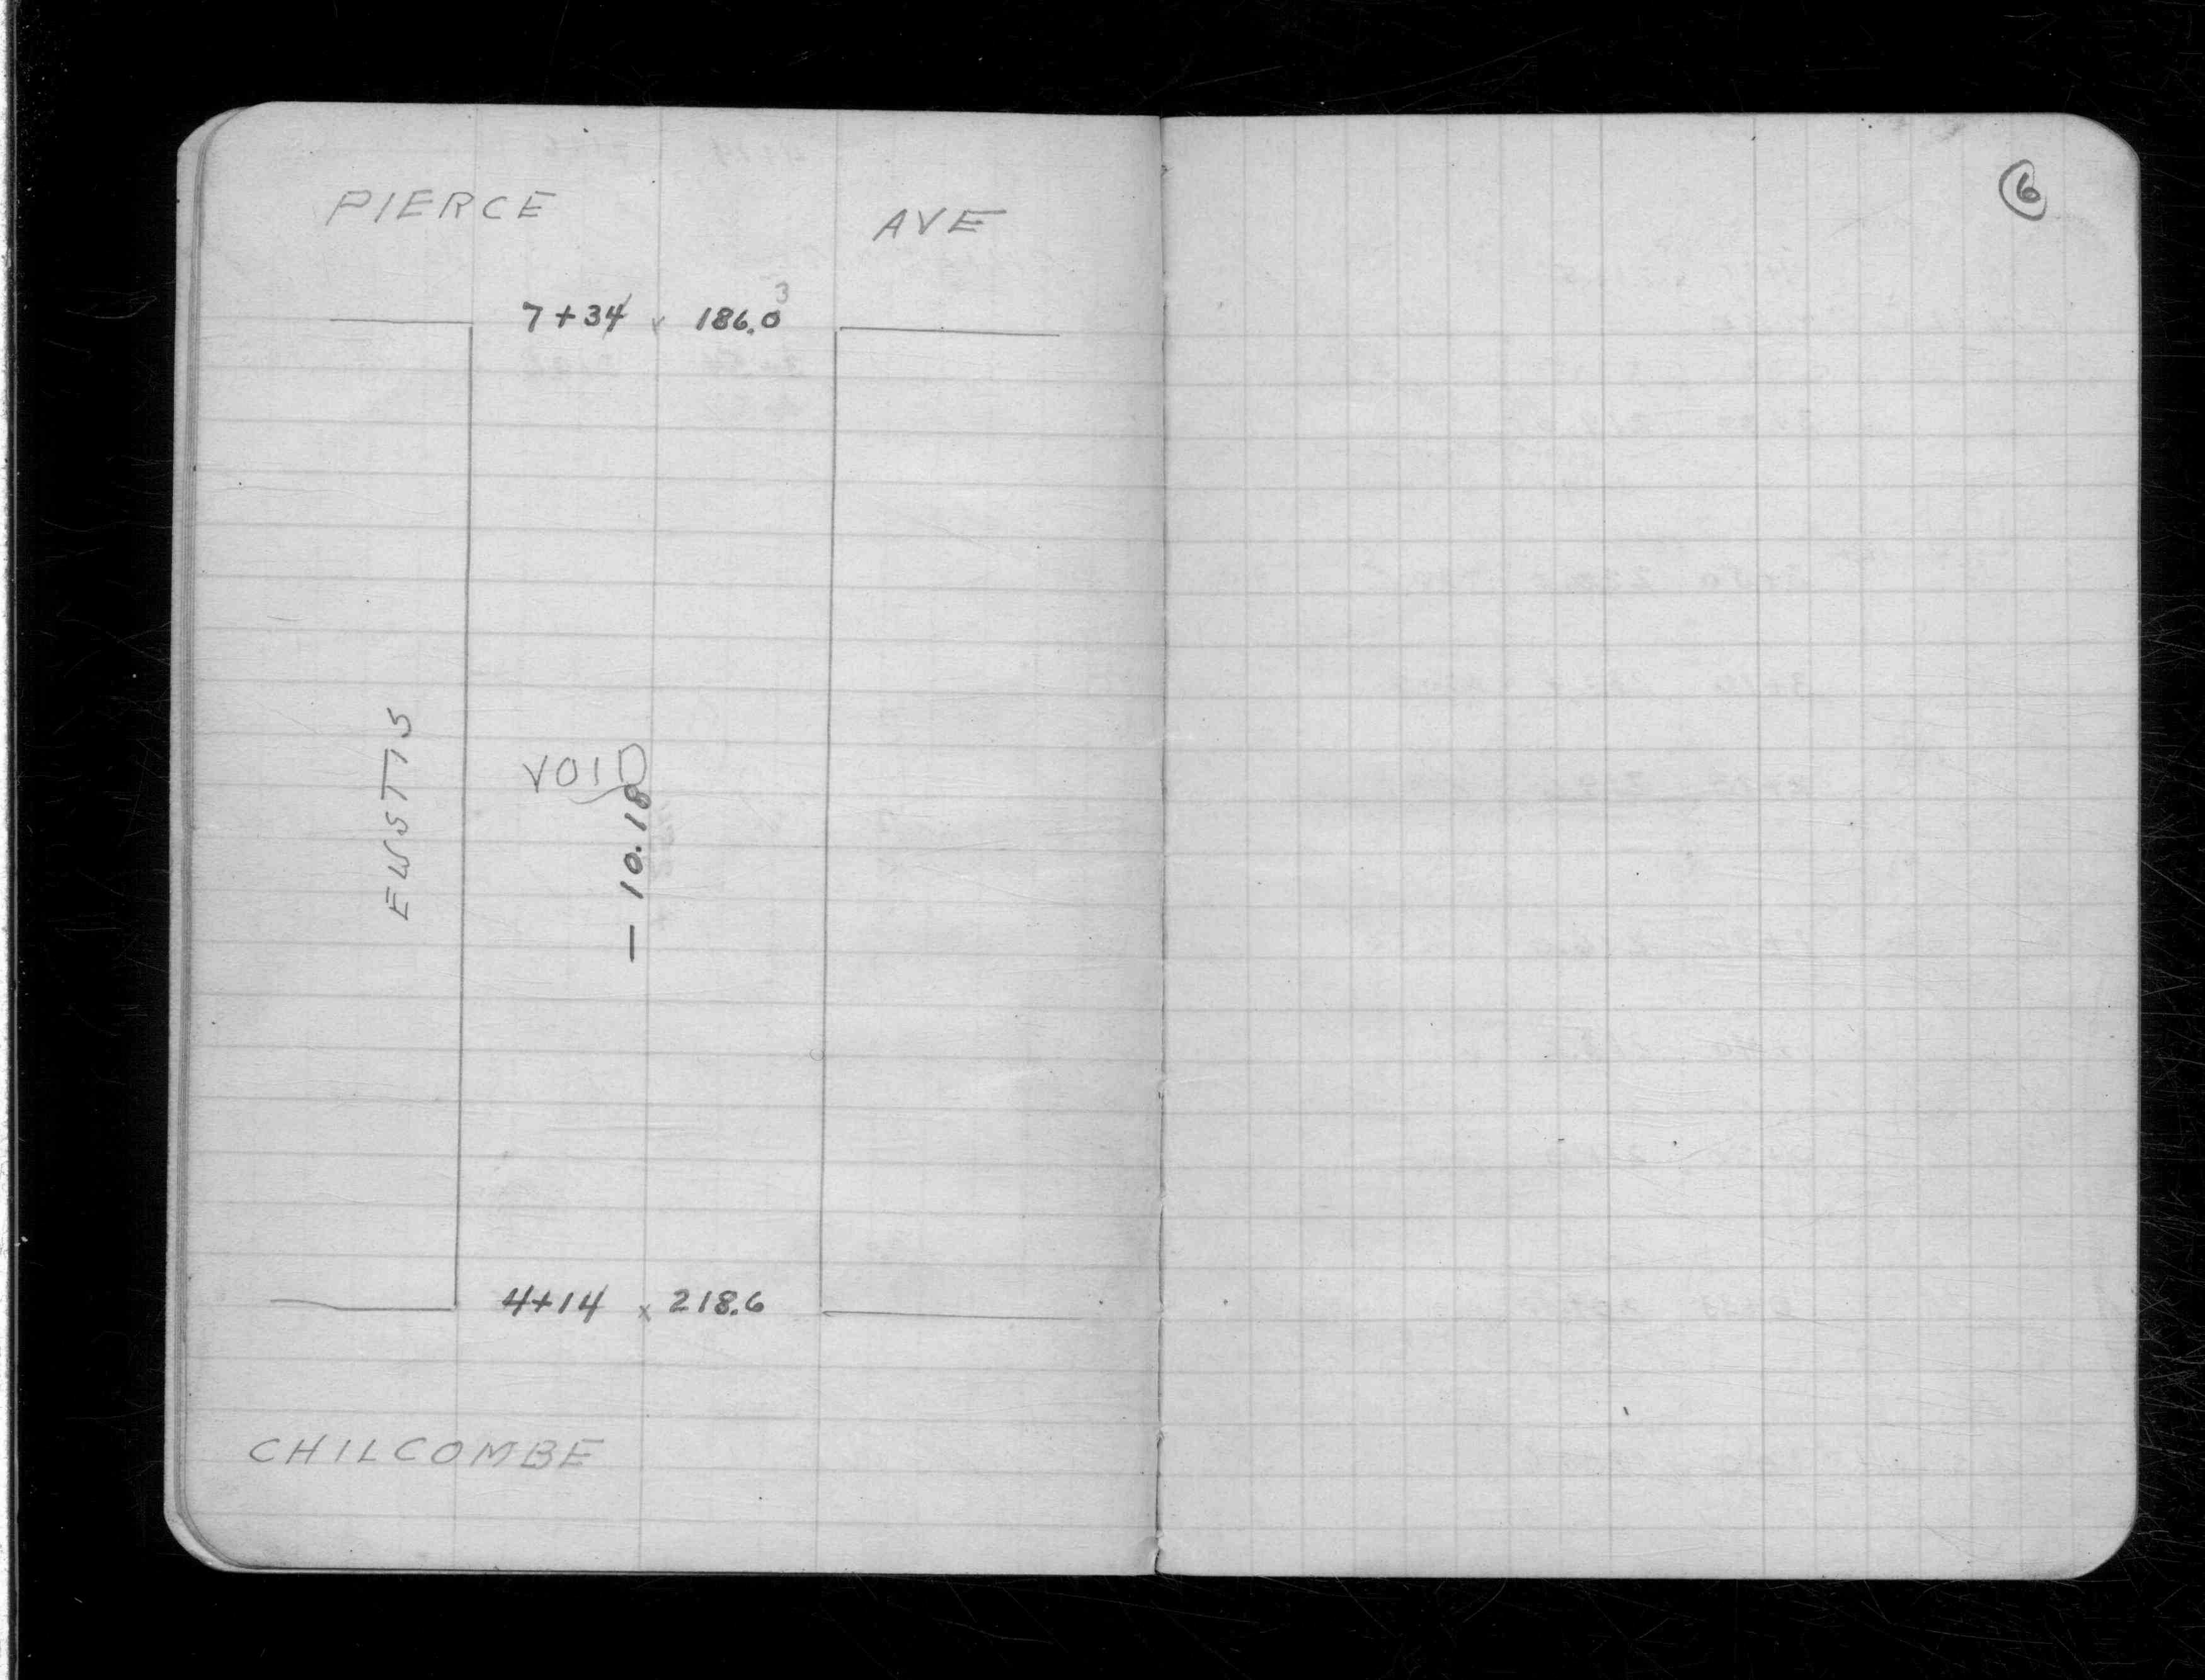 6
PIERCE AVE
3
7+34 x 186.0
EUSTIS
VOID
— 10.18
4+14 x 218.6
CHILCOMBE